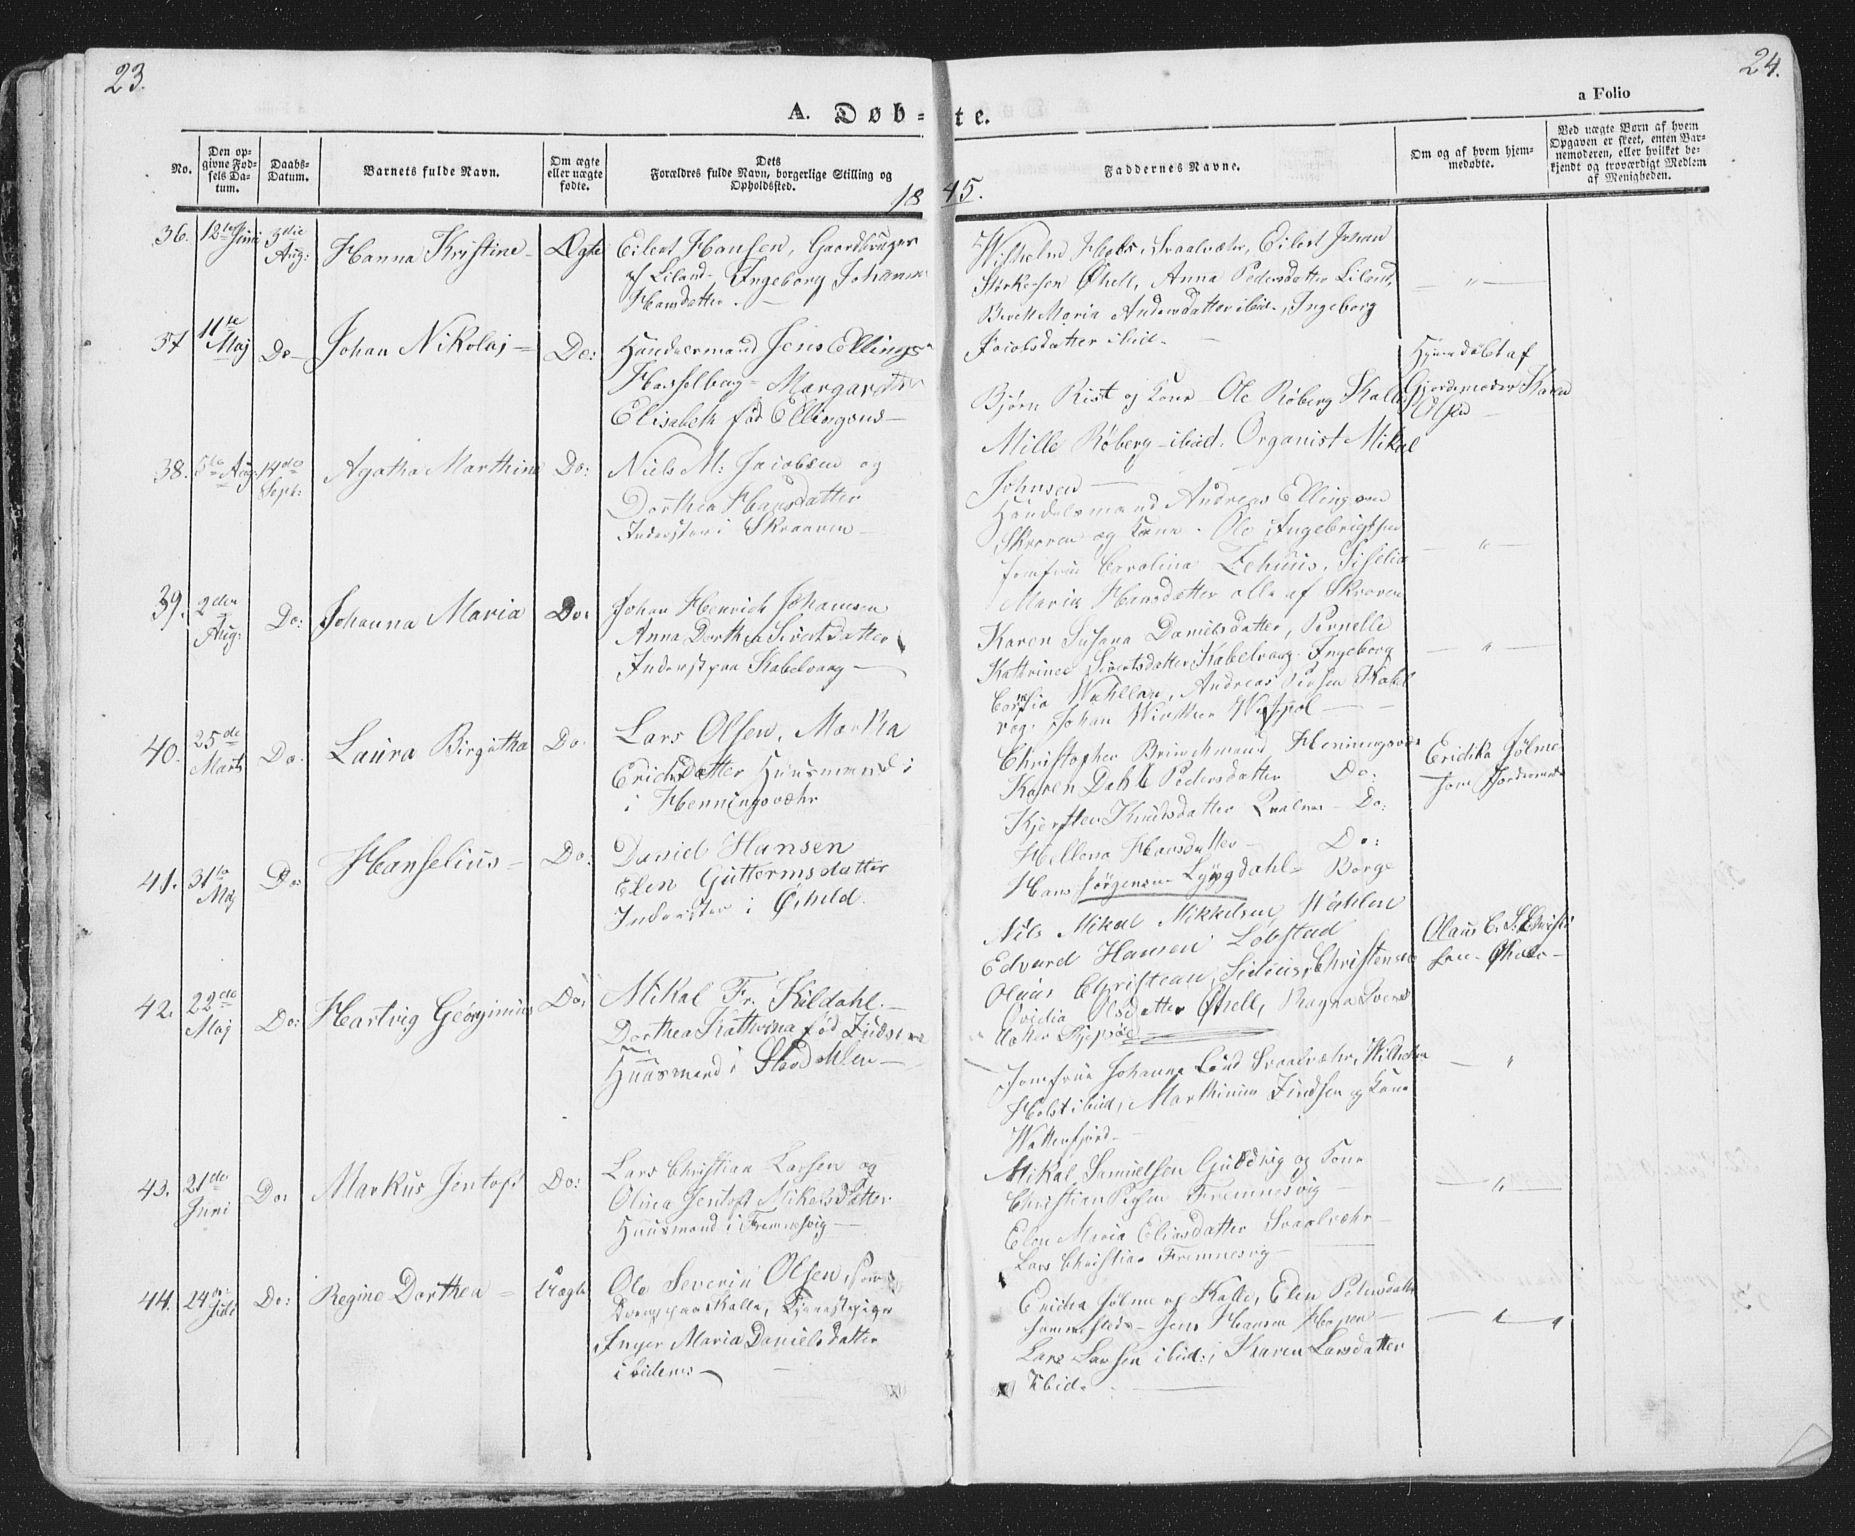 23.
24.
a Folio
A. Døb-te.
No.
Den op-
givne Fød-
sels Da-
tum.
Daabs-
Datum.
Barnets fulde Navn.
Om ægte
eller uægte
fødte.
Dets
Forældres fulde Navn, borgerlige Stilling og
Opholdssted.
Faddernes Navne.
Om og af hvem hjem-
medøbte.
Ved uægte Børn af hvem
Opgaven er skeet, enten Bar-
nemoderen, eller hvilket be-
kjendt og troværdigt Medlem
af Menigheden.
1845.
36. 12te Juni 3die Aug: Hanna Kristine Ægte
Eilert Hansen, Gaardbruger
af Liland, Ingeborg Johanna
Hansdatter
Wilhelm Holst Svaalvæhr, Eilert Johan
Størkersen Øhell, Anna Pedersdatter Liland,
Berith Maria Andersdatter ibid., Ingeborg
Jacobsdatter ibid.
37 11te Maj Do Johan Nikolaj Do:
Handelsmand Jens Ellings
Hasselberg Margaretha
Elisabeth fød Ellingsens
Bjørn Rist og Kone Ole Røberg Kalle
Mille Røberg ibid. Organist Mikal
Johnsen
Hjemmedøbt af
Gjordemoder Karen
Olsen
38. 5te Aug: 14de Sept: Agatha Marthine Do:
Niels M: Jacobsen og
Dorthea Hansdatter
Inderster i Skraaven
Handelsmand Andreas Ellingsen
Skroven og Kone. Ole Ingebrigtsen
Jomfrue Carolina Zehius, Siselia
Maria Hansdatter alle af Skroven
39. 2den Aug: Do: Johanna Maria Do:
Johan Henrich Johansen
Anna Dorthea Sivertsdatter
Inderst paa Kabelvaag
Karen Susana Danielsdatter, Pernelle
Kathrine Sivertsdatter Kabelvaag. Ingeborg
Wahllar, Andreas Kabel
vog. Johan
40. 25de Marts Do. Laura Birgitha Do.
Lars Olsen, Martha
Erichsdatter Huusmand i
i Henningsvæhr
Christopher Brinchmand Henningsvæhr
Karen Dahl Pedersdatter Do:
Kjersten Knudsdatter Do:
Hellena Hansdatter Do:
Hans Jørgensen Lyngdahl Borge
Ericka Jølme
Jordemoder
41. 31te Maj Do Hanselius Do:
Daniel Hansen
Elen Guttormsdatter
Inderster i Øhield.
Nils Mikal Mikkelsen Wahlen
Edvard Hansen Lobstad
Olaus Christean, Christensen
Ovidia Olsdatter Øhell, Ragna Svens
datter
Olaus C. S. Christi
sen Øhell
42. 22de Maj Do: Hartvig Georginius Do:
Mikal Fr. Kildahl.
Dorthea Kathrina fød Zindsen
Huusmand i Stordahlen
Jomfrue Johanna Lund Svaalvæhr, Wilhelm
Holst ibid, Marthinus Zindsen og Kone
Wattenfjord
43. 21de Juni Do: Markus Jentoft Do:
Lars Christian Larsen og
Olina Jentoft Mikelsdatter
Huusmand i Fremnesvig
Mikal Samuelsen Guldvig og Kone
Christian Fremnesvig
Elen Maria Eliasdatter Svaalvæhr
Lars Christian Fremnesvig
44. 24de Juli Do: Regine Dorthea Uægte
Ole Severin Olsen,
Dreng paa Kalle, Tjenestepige
Inger Maria Danielsdatter
i bidem
Ericka Jølme af Kalle, Elen Pedersdatter
sammesteds Jens Hansen Hopen
Lars Larsen ibid:, Karen Larsdatter
Ibid.